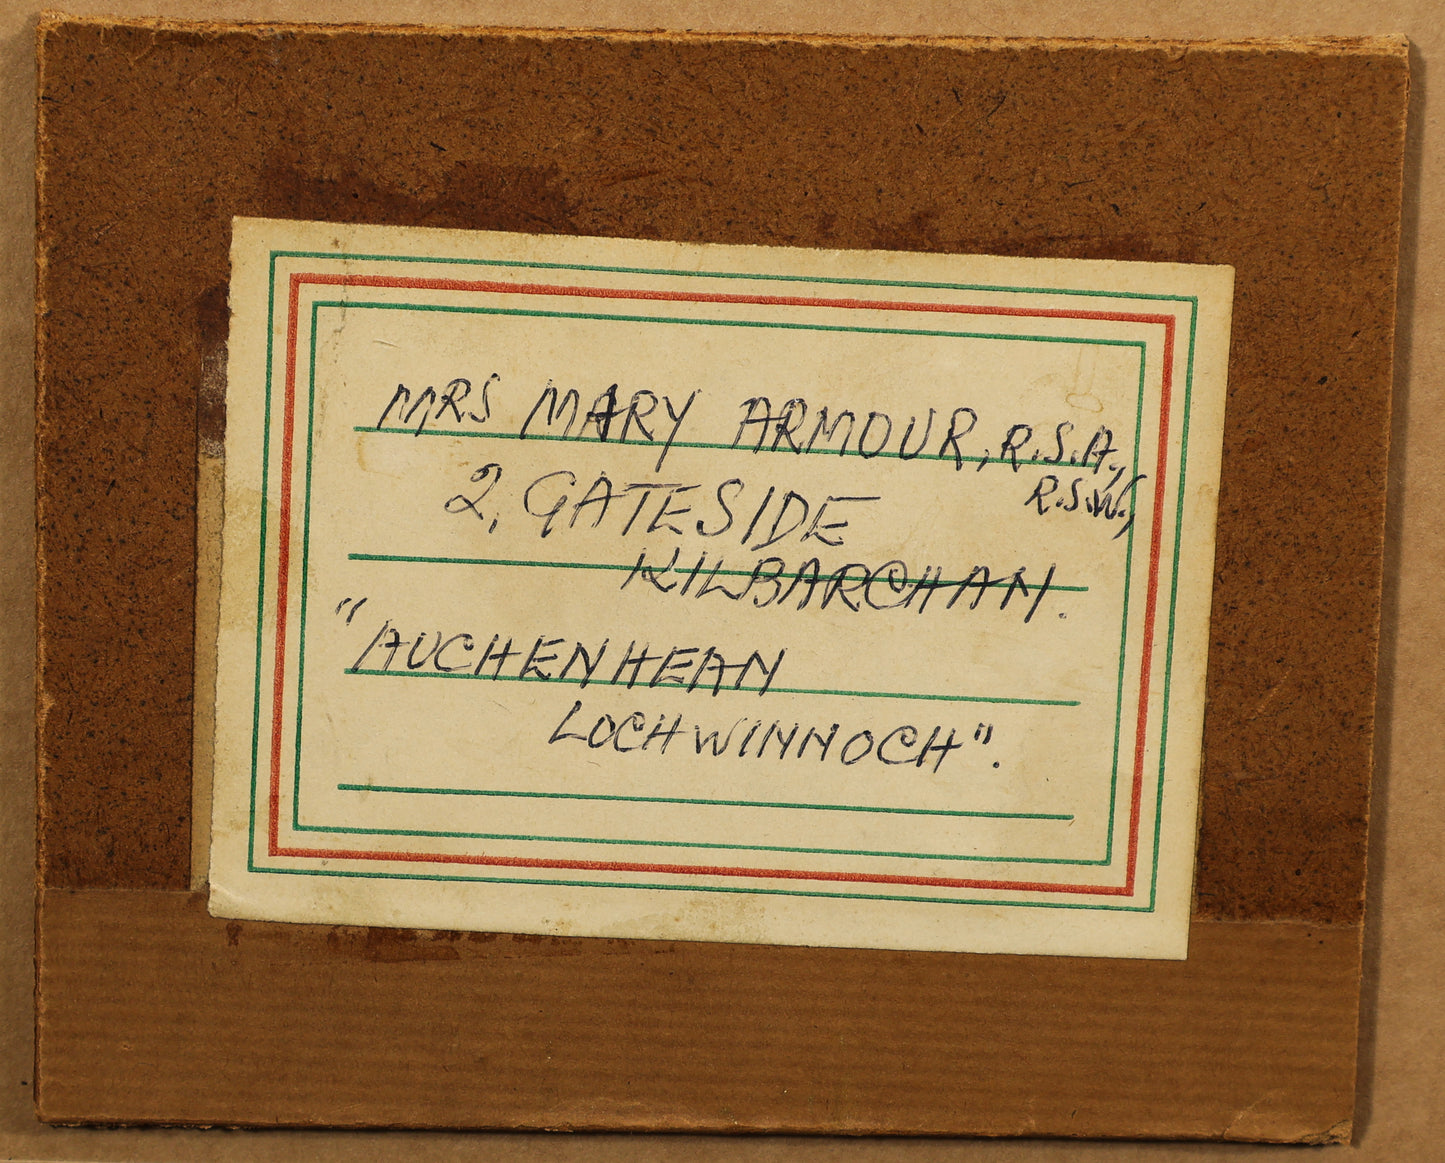 MRS MARY ARMOUR, R.S.A.,
R.S.W.,
2, GATESIDE
KILBARCHAN.
"AUCHENHEAN
LOCHWINNOCH".